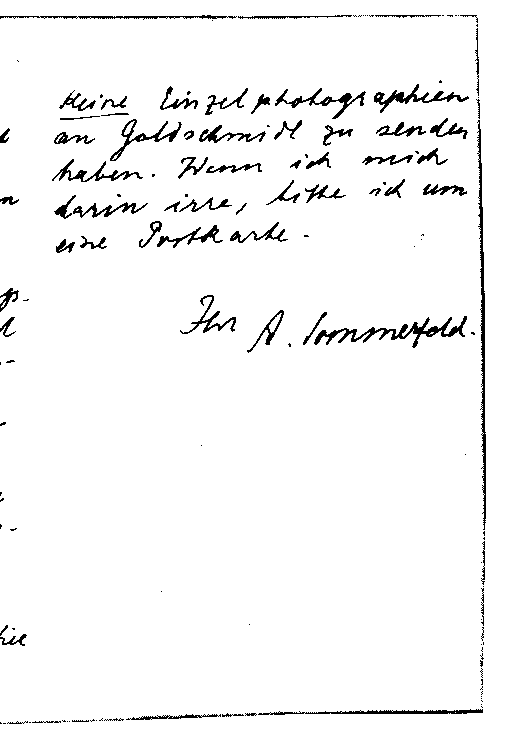 keine Einzelphotographien
an Goldschmidt zu senden
haben. Wenn ich mich
darin irre, bitte ich um
eine Postkarte.
Ihr A. Sommerfeld.